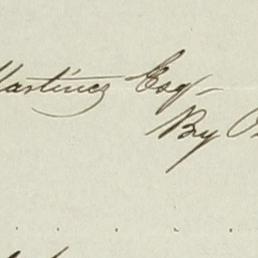 Martinez Esqr
By